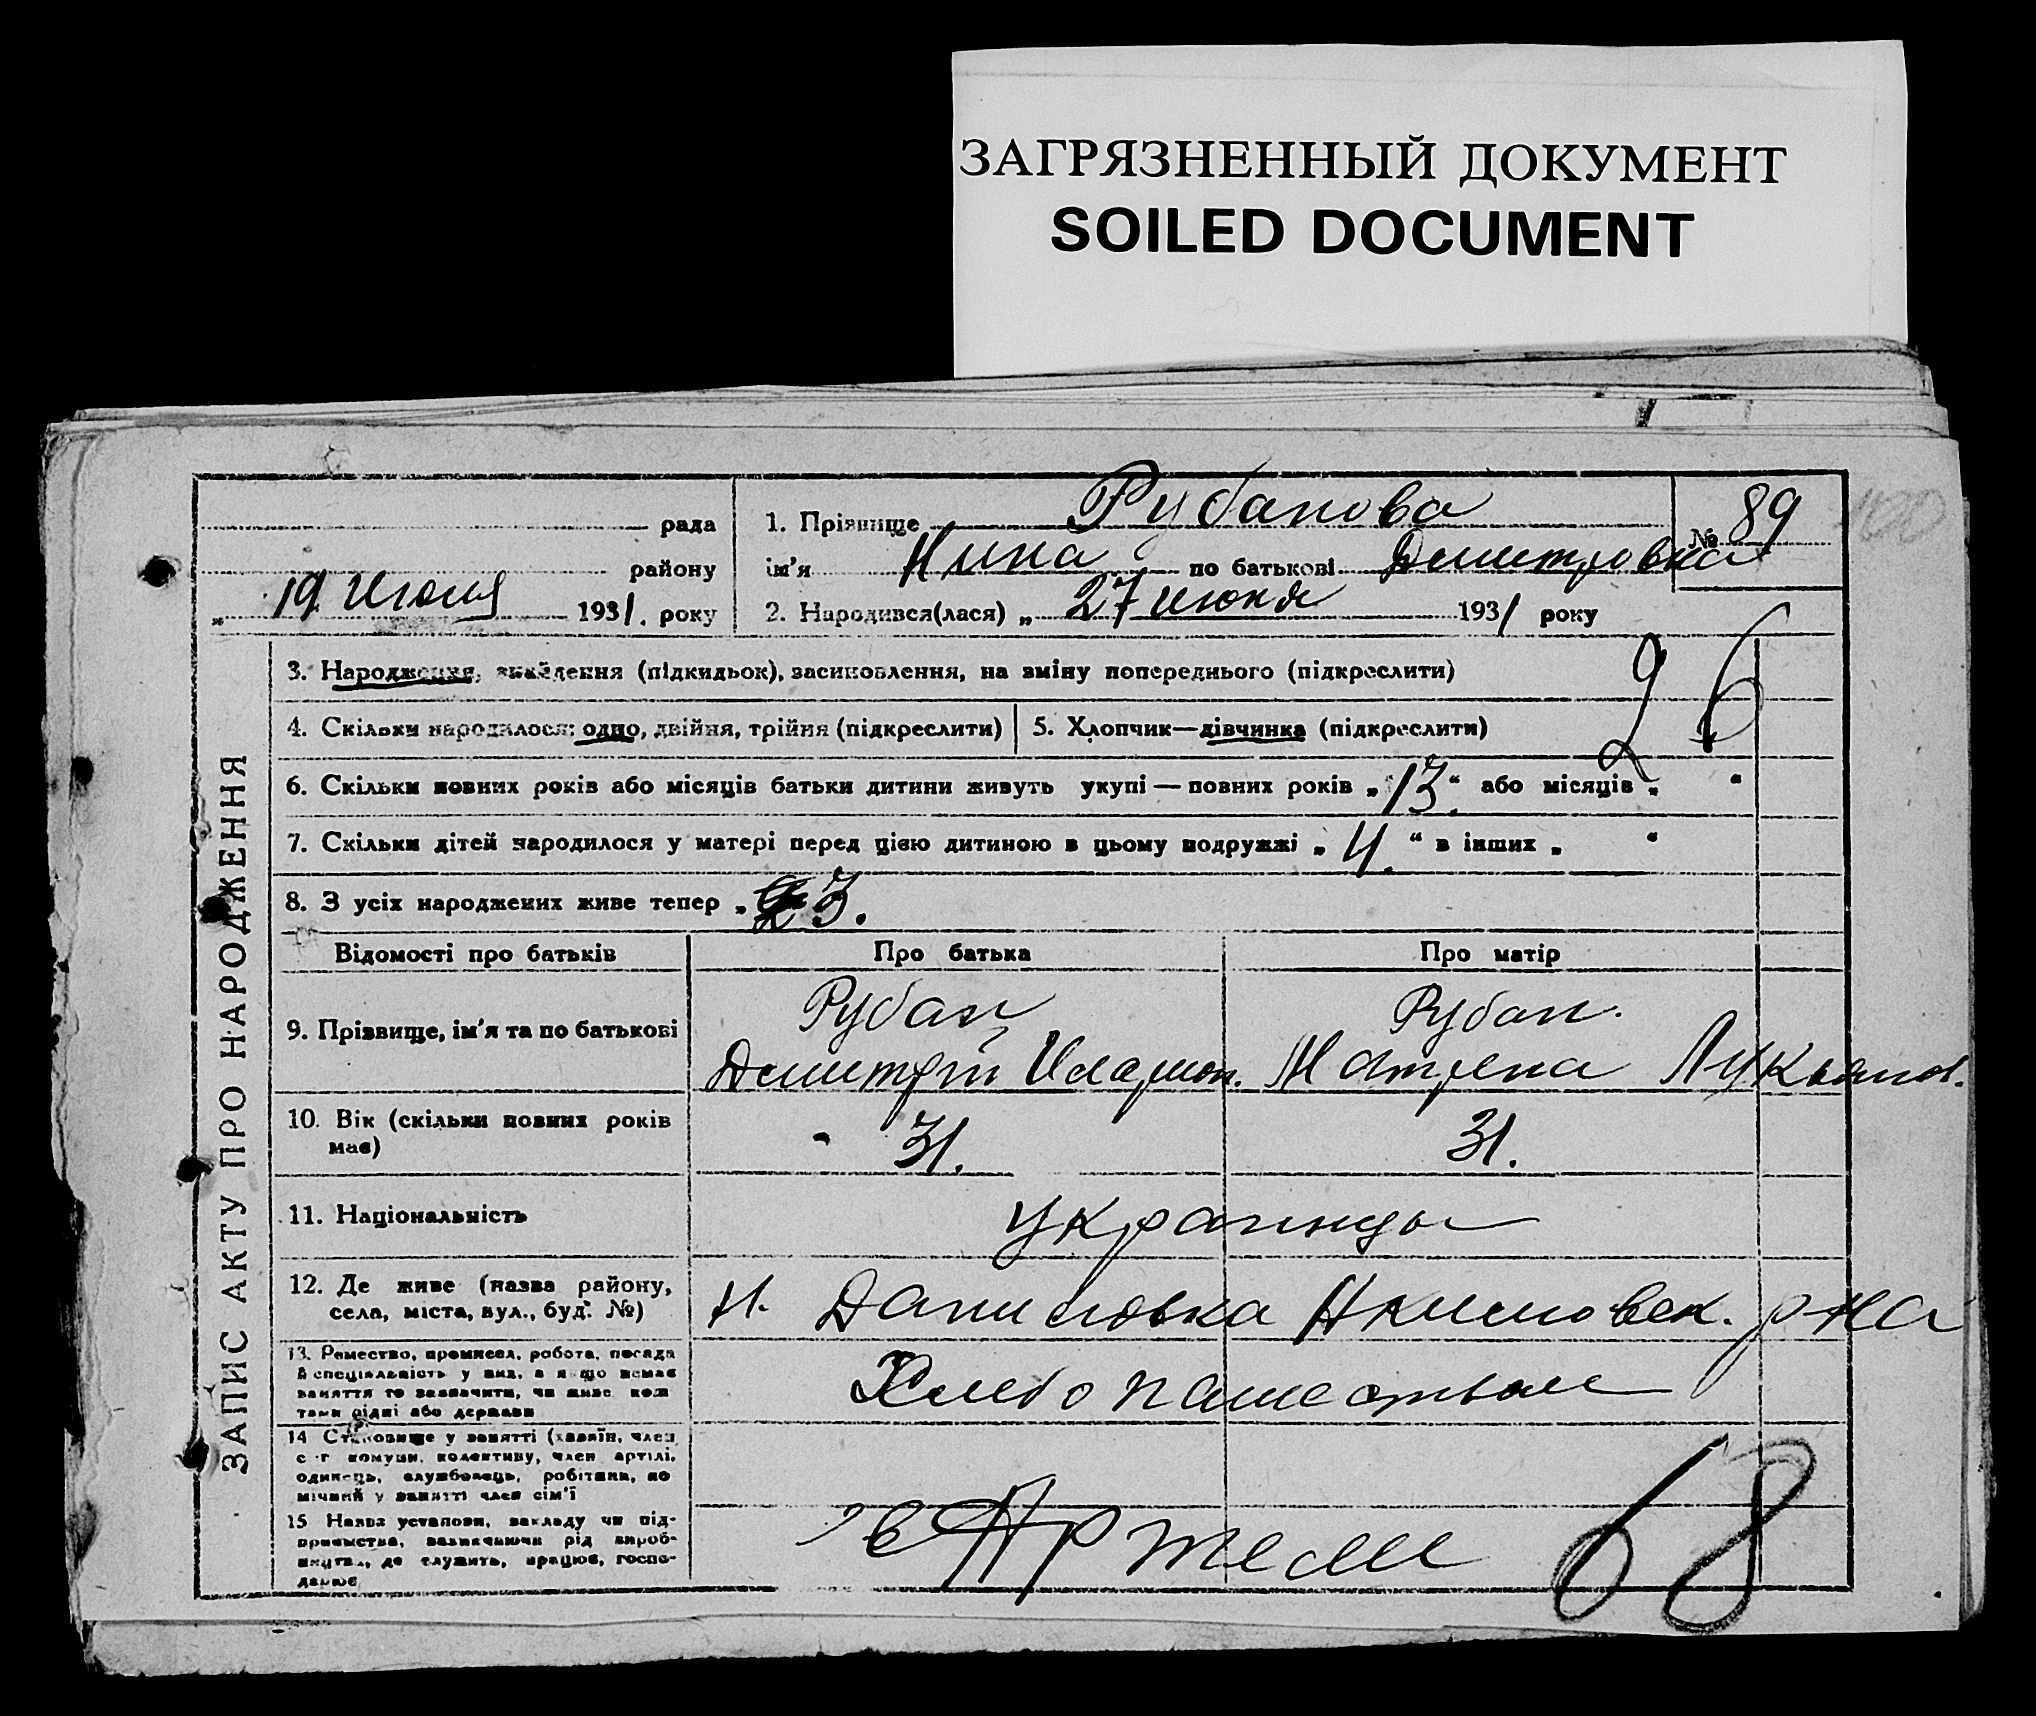 ЗАГРЯЗНЕННЫЙ ДОКУМЕНТ
SOILED DOCUMENT
ЗАПИС АКТУ ПРО НАРОДЖЕННЯ
рада
району
„ 19 Июля 1931. року
1. Прізвище Рубанова
ім'я Нина по батькові Димитровна
№ 89
2. Народився(лася) „ 27 июня 1931 року
3. Народження, знайдення (підкидьок), засиновлення, на зміну попереднього (підкреслити)
26
4. Скільки народилося: одно, двійня, трійня (підкреслити)
5. Хлопчик—дівчинка (підкреслити)
6. Скільки повних років або місяців батьки дитини живуть укупі — повних років „ 13. “ або місяців „ “
7. Скільки дітей народилося у матері перед цією дитиною в цьому подружжі „ 4. “ в інших „ “
8. З усіх народжених живе тепер „ 3.
Відомості про батьків
Про батька
Про матір
9. Прізвище, ім'я та по батькові
Рубан
Димитрій Иларион.
Рубан.
Матрена Лукьянов.
10. Вік (скільки повних років має)
31.
31.
11. Національність
украинцы
12. Де живе (назва району,
села, міста, вул., буд. №)
Н. Даниловка Акимовск. р-на
13. Ремество, промисел, робота, посада
й спеціяльність у них, а якщо немає
заняття то зазначити, чи живе кош
тами рідні або держави
Хлебопашеством
14 Становище у занятті (хазяїн, член
с-г комуни, колективу, член артілі,
одинець, службовець, робітник, по
мічний у занятті член сім'ї
15 Назва установи, закладу чи під-
приємства, зазначаючи рід вироб-
ництва, де служить, працює, госпо-
дарює
в Артели
68